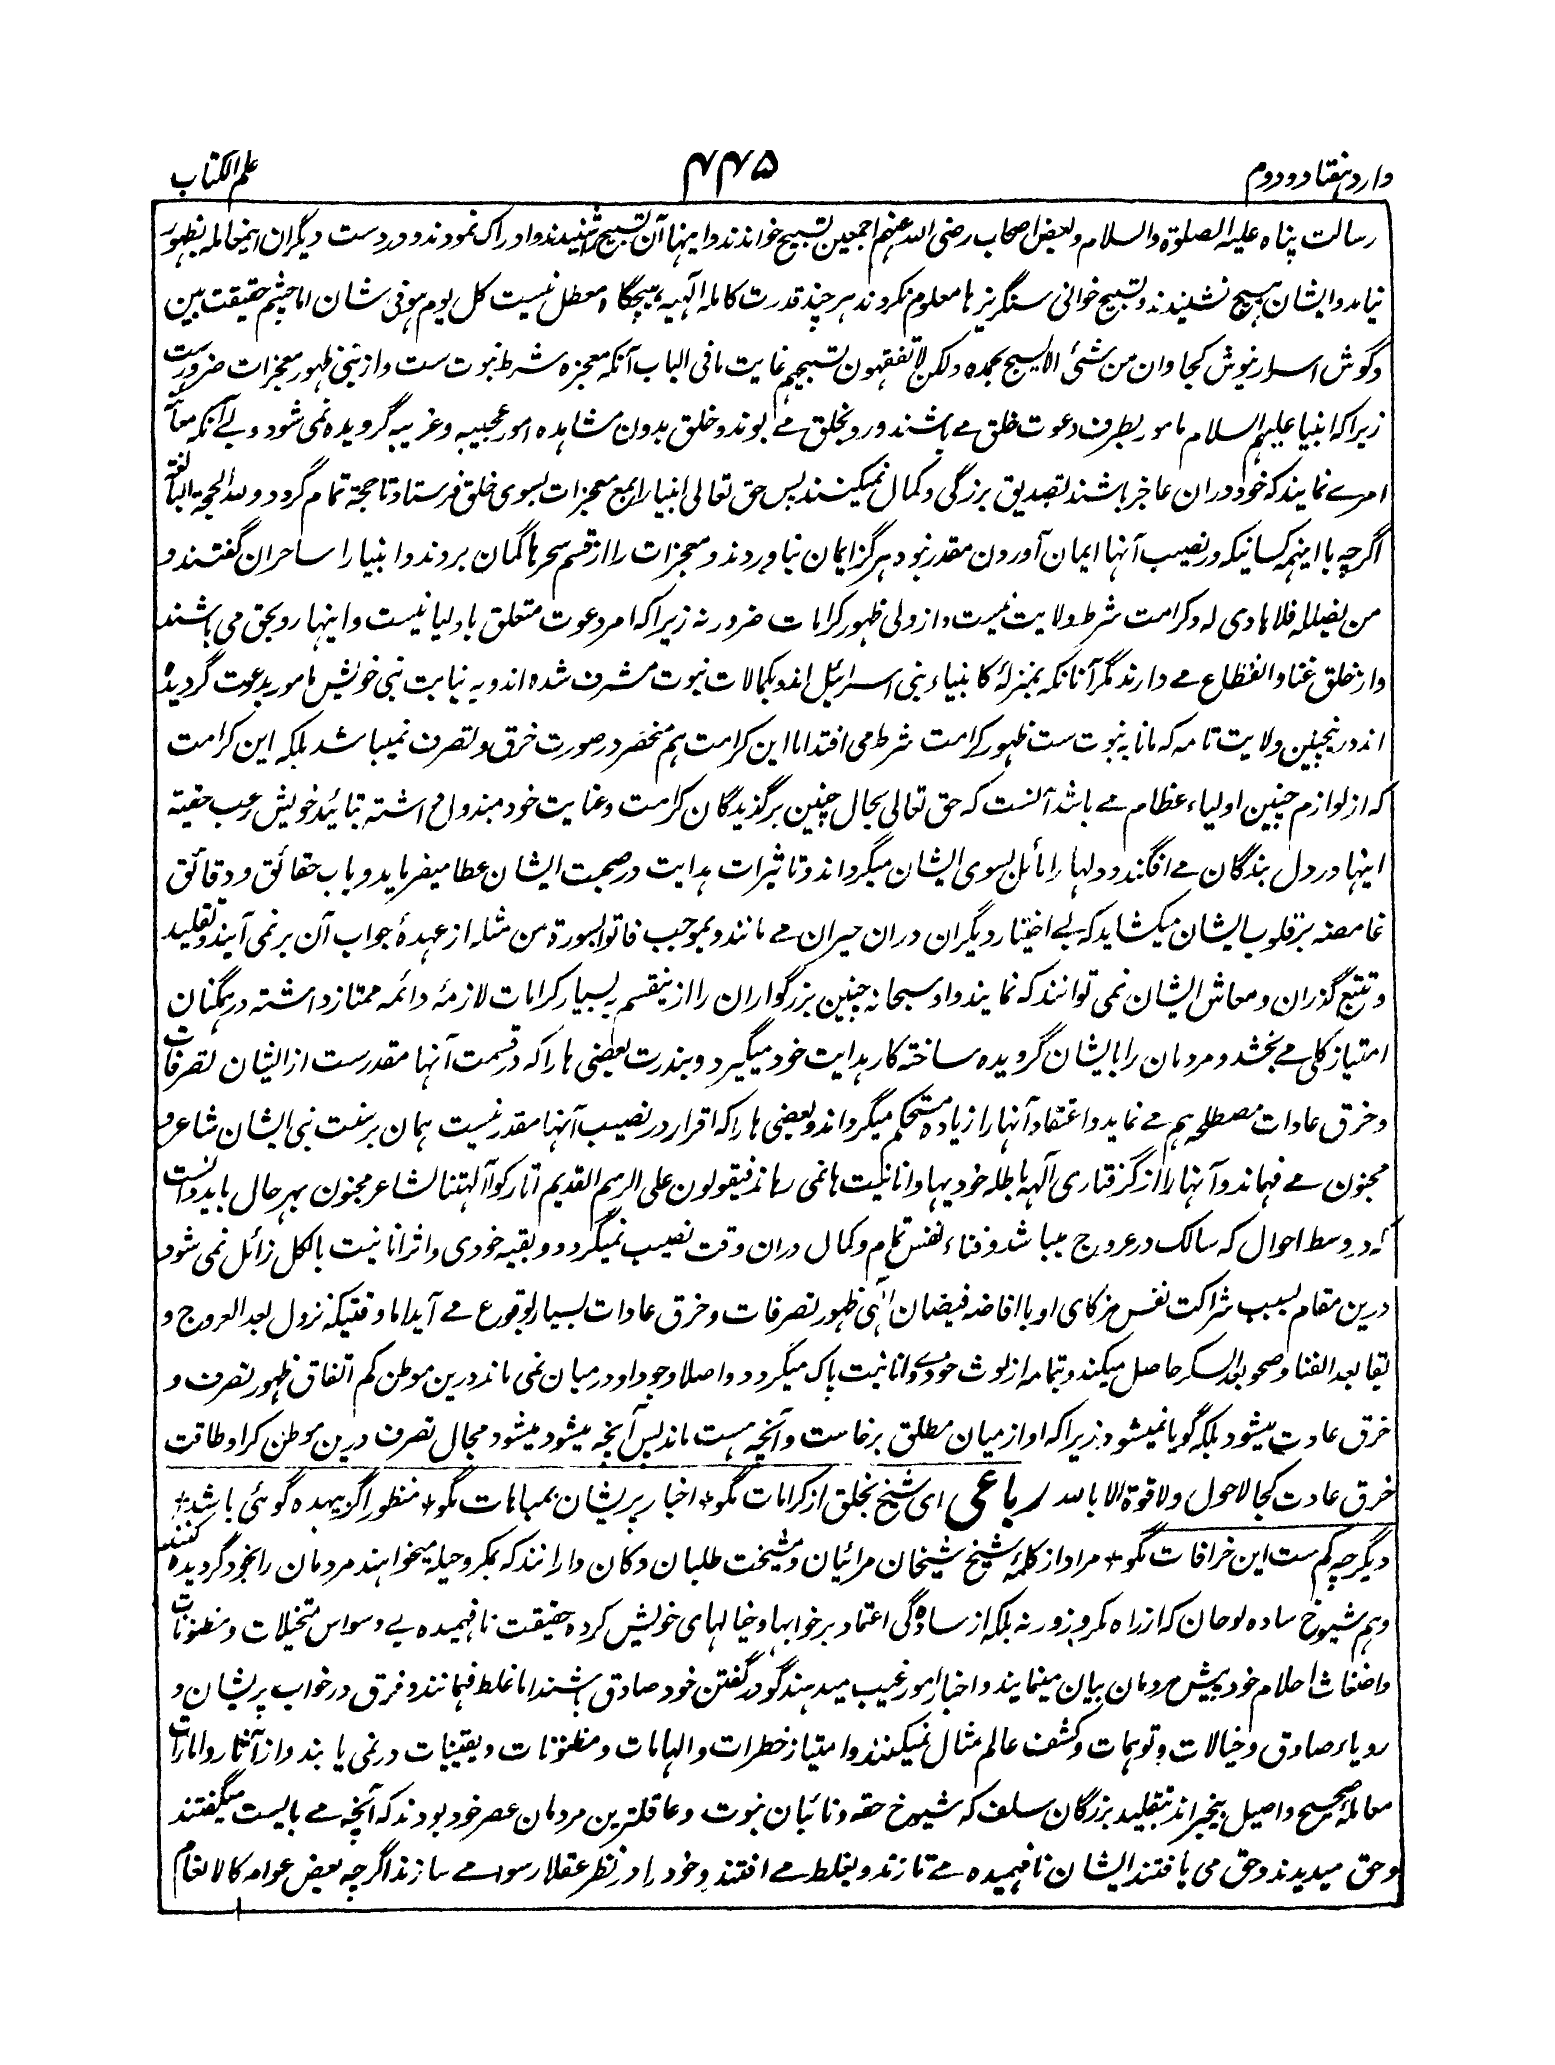 وارد هفتاد و دوم ۴۴۵ علم الکتاب
رسالت پناه علیه الصلوة والسلام و بعض اصحاب رضی الله عنهم اجمعین تسبیح خواندند و اینها آن تسبیح را شنیدند و ادراک نمودند و در دست دیگران اینمعامله بظهور
نیامد و ایشان هیچ نشنیدند و تسبیح خوانی سنگریزها معلوم نکردند هر چند قدرت کامله آلهیه هیچگاه معطل نیست کل یوم هو فی شان اما چشم حقیقت بین
و گوش اسرار نیوش کجا و ان من شئ الا یسبح بحمده و لکن لا تفقهون تسبیحهم غایت ما فی الباب آنکه معجزه شرط نبوت ست و از نبی ظهور معجزات ضرورست
زیرا که انبیا علیهم السلام مامور بطرف دعوت خلق مے باشند و رو بخلق مے بوند و خلق بدون مشاهده امور عجیبه و غریبه گرویده نمی شود و بے آنکه معاً
امرے نمایند که خود دران عاجز باشند تصدیق بزرگی و کمال نمیکنند پس حق تعالی انبیا را بمع معجزات بسوی خلق فرستاد تا حجة تمام گردد و لله الحجة البالغة
اگرچه با اینهمه کسانیکه در نصیب آنها ایمان آوردن مقدر نبود هرگز ایمان نیاوردند و معجزات را از قسم سحرها گمان بردند و انبیا را ساحران گفتند و
من یضلله فلا هادی له و کرامت شرط ولایت نیست و از ولی ظهور کرامات ضرور نه زیرا که امر دعوت متعلق باولیا نیست و اینها رو بحق می باشند
و از خلق غنا و انقطاع مے دارند مگر آنانکه بمنزلهٔ کانبیاء بنی اسرائیل اند و بکمالات نبوت مشرف شده اند و به نیابت نبی خویش مامور بدعوت گردیده
اند در ینچنین ولایت تامه که مانا به نبوت ست ظهور کرامت شرط می افتد اما این کرامت هم منحصر در صورت خرق و تصرف نمیباشد بلکه این کرامت
که از لوازم چنین اولیاء عظام مے باشد آنست که حق تعالی بحال چنین برگزیدگان کرامت و عنایت خود مبذول داشته بتائید خویش رعب حقیه
اینها در دل بندگان مے افگند و دلها را مائل بسوی ایشان میگرداند و تاثیرات هدایت در صحبت ایشان عطا میفرماید و باب حقائق و دقائق
غامضه بر قلوب ایشان میکشاید که بے اختیار دیگران دران حیران مے مانند و بموجب فاتوا بسورة من مثله از عهدهٔ جواب آن بر نمی آیند و تقلید
و تتبع گذران و معاش ایشان نمی توانند که نمایند و او سبحانه چنین بزرگواران را از ینقسم به بسیار کرامات لازمهٔ دائمه ممتاز داشته در همگنان
امتیاز کلی مے بخشد و مردمان را بایشان گرویده ساخته کار هدایت خود میگیرد و بندرت بعضی ها را که در قسمت آنها مقدرست از ایشان تصرفات
و خرق عادات مصطلحه هم مے نماید و اعتقاد آنها را زیاده مستحکم میگرداند و بعضی ها را که اقرار در نصیب آنها مقدر نیست همان بر سنت نبی ایشان شاعر و
مجنون مے فهماند و آنها را از گرفتاری آلهه باطله خودیها و انانیت ها نمی رهاند فیقولون علی الرسم القدیم اتارکوا آلهتنا لشاعر مجنون بهرحال باید دانست
که در وسط احوال که سالک در عروج میباشد و فناء نفس تمام و کمال دران وقت نصیب نمیگردد و بقیه خودی و اثر انانیت بالکل زائل نمی شود
درین مقام بسبب شراکت نفس مزکای او با افاضه فیضان الٰهی ظهور تصرفات و خرق عادات بسیار بوقوع مے آید اما وقتیکه نزول بعد العروج و
بقا بعد الفنا و صحو بعد السکر حاصل میکند و بتمامه از لوث خودی و انانیت پاک میگردد و اصلا وجود او در میان نمی ماند درین موطن کم اتفاق ظهور تصرف و
خرق عادت میشود بلکه گویا نمیشود زیرا که او از میان مطلق برخاست و آنچه هست ماند پس آنچه میشود میشود مجال تصرف درین موطن کرا و طاقت
خرق عادت کجا لا حول ولا قوة الا بالله رباعی ای شیخ بخلق از کرامات مگو * اخبار پریشان بمباهات مگو * منظور اگر بیهده گوئی باشد *
دیگر چه کم ست این خرافات مگو * مراد از کلمهٔ شیخ شیخان مرائیان و مشیخت طلبان دکان دارانند که بمکر و حیله میخواهند مردمان را بخود گردیده کنند
و هم شیوخ ساده لوحان که از راه مکر و زور نه بلکه از سادگی اعتماد بر خوابها و خیالهای خویش کرده حقیقت نافهمیده بے وسواس متخیلات و مظنونات
و اضغاث احلام خود پیش مردمان بیان مینمایند و اخبار امور غیب میدهند گو در گفتن خود صادق باشند اما غلط فهمانند و فرق در خواب پریشان و
رویاء صادق و خیالات و توهمات و کشف عالم مثال نمیکنند و امتیاز خطرات و الهامات و مظنونات و یقینیات در نمی یابند و از آثار و امارات
معاملهٔ صحیح و اصیل بیخبراند بتقلید بزرگان سلف که شیوخ حقه و نائبان نبوت و عاقلترین مردمان عصر خود بودند که آنچه مے بایست میگفتند
و حق میدیدند و حق می یافتند ایشان نافهمیده مے تازند و بغلط مے افتند و خود را در نظر عقلا رسوا مے سازند اگرچه بعض عوام کالانعام